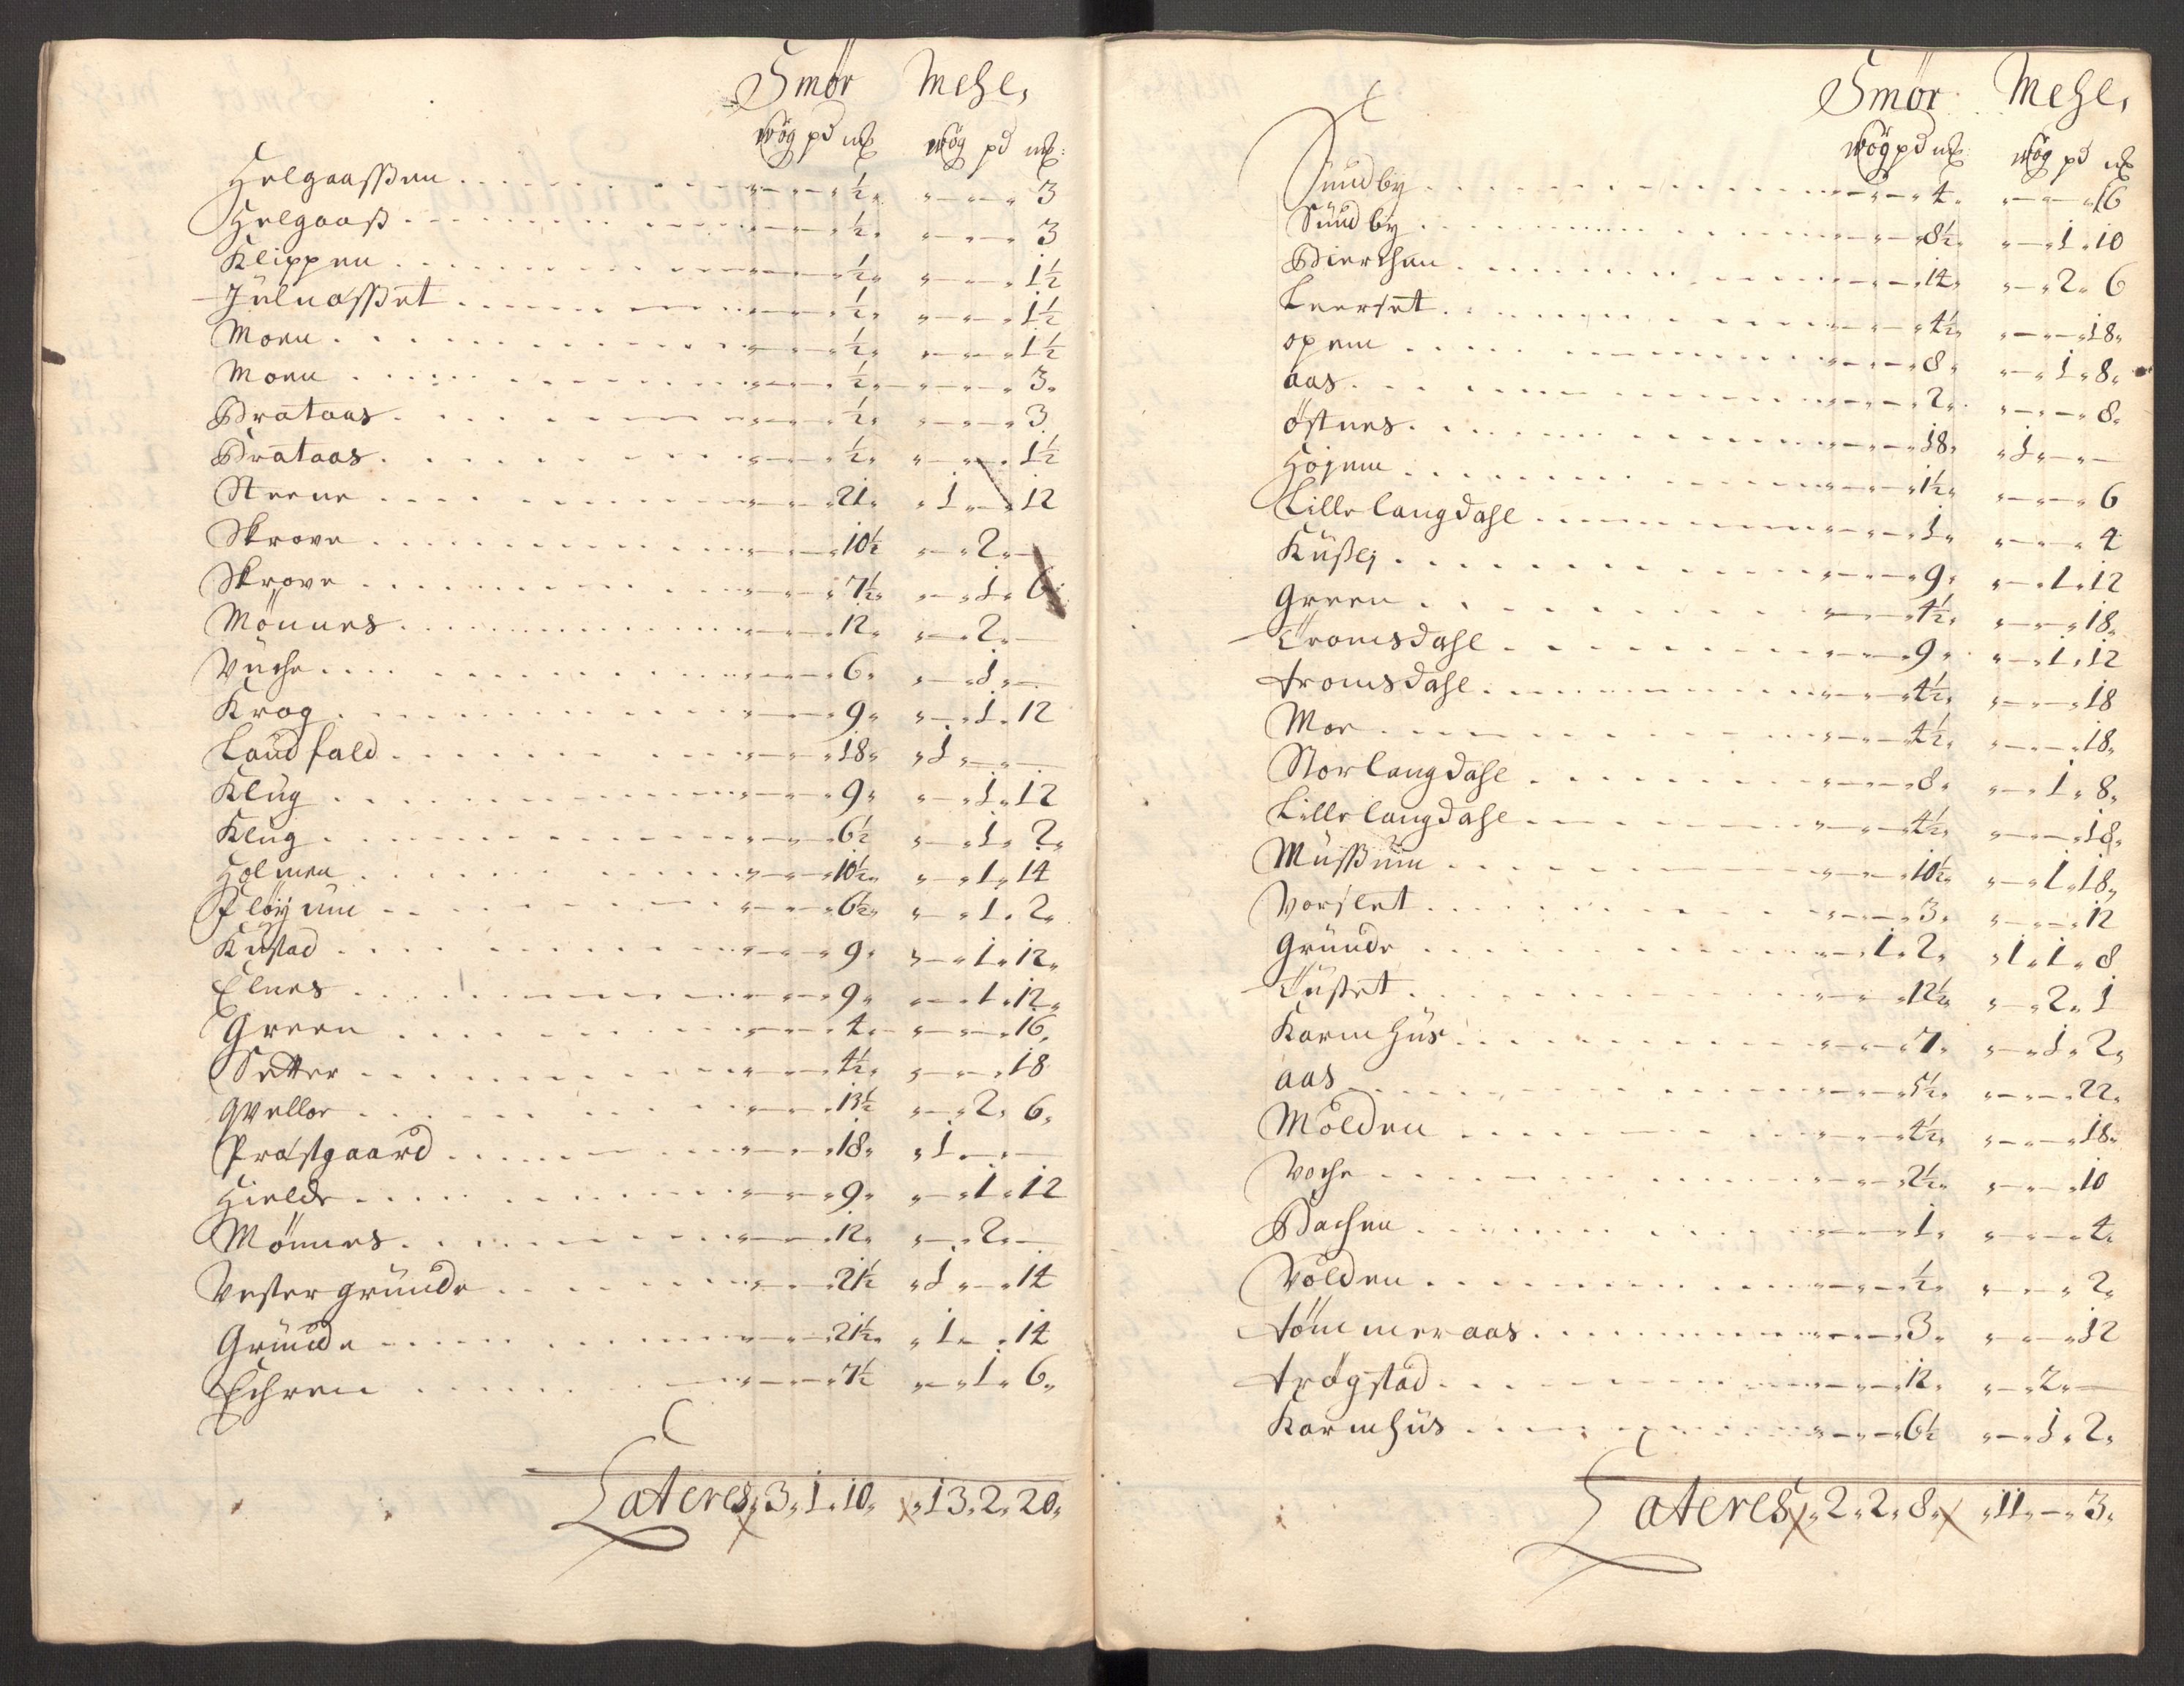 Smör Mehl,
wög pd mk wög pd mk:
Helgaassen „ - „ - „ ½ „ „ - „ - „ 3
Helgaass „ - „ - „ ½ „ „ - „ - „ 3
Klippen „ - „ - „ ½ „ „ - „ - „ 1½
Julnasset „ - „ - „ ½ „ „ - „ - „ 1½
Moen „ - „ - „ ½ „ „ - „ - „ 1½
Moen „ - „ - „ ½ „ „ - „ - „ 3 „
Brataas „ - „ - „ ½ „ „ - „ - „ 3
Brataas „ - „ - „ ½ „ „ - „ - „ 1½
Steene „ - „ - „ 21 „ „ 1 „ - „ 12
Skrove „ - „ - „ 10½ „ - „ 2 „ -
Skrove „ - „ - „ 7½ „ „ - „ 1 „ 6
Mönnes „ - „ - „ 12 „ „ - „ 2 „ -
Vuche „ - „ - „ 6 „ „ - „ 1 „ -
Krog „ - „ - „ 9 „ „ - „ 1 „ 12
Landfald „ - „ - „ 18 „ „ 1 „ - „ -
Klug „ - „ - „ 9 „ „ - „ 1 „ 12
Klug „ - „ - „ 6½ „ - „ 1 „ 2 „
Holmen „ - „ - „ 10½ „ „ - „ 1 „ 14
Fløÿum „ - „ - „ 6½ „ „ - „ 1 „ 2 „
Kustad „ - „ - „ 9 „ „ - „ 1 „ 12 „
Elnes „ - „ - „ 9 „ „ - „ 1 „ 12 „
Green „ - „ - „ 4 „ „ - „ - „ 16 „
Setter „ - „ - „ 4½ „ „ - „ - „ 18
Qveller „ - „ - „ 13½ „ - „ 2 „ 6 „
Præstgaard „ - „ - „ 18 „ „ 1 „ - „ -
Hielde „ - „ - „ 9 „ „ - „ 1 „ 12
Mönnes „ - „ - „ 12 „ „ - „ 2 „ -
Vestergrunde „ - „ - „ 21½ „ 1 „ - „ 14
Grunde „ - „ - „ 21½ „ „ 1 „ - „ 14
Echren „ - „ - „ 7½ „ - „ 1 „ 6 „
Lateres „ 3 „ 1 „ 10 „ „ 13 „ 2 „ 20 „
Smör Mehl,
wög pd mk wög pd mk
Sundby „ - „ - „ 4 „ „ - „ - „ 16
Sundby „ - „ - „ 8½ „ „ - „ 1 „ 10
Bierchen „ - „ - „ 14 „ „ - „ 2 „ 6
Leerset „ - „ - „ 4½ „ „ - „ - „ 18 „
opem „ - „ - „ 8 „ „ - „ 1 „ 8 „
aas „ - „ - „ 2 „ „ - „ - „ 8 „
östnes „ - „ - „ 18 „ „ 1 „ - „ -
Höjem „ - „ - „ 1½ „ „ - „ - „ 6
Lille langdahl „ - „ - „ 1 „ „ - „ - „ 4
Kusle „ - „ - „ 9 „ „ - „ 1 „ 12
Green „ - „ - „ 4½ „ „ - „ - „ 18 „
Tromsdahl „ - „ - „ 9 „ „ - „ 1 „ 12
tromsdahl „ - „ - „ 4½ „ „ - „ - „ 18
Moe „ - „ - „ 4½ „ „ - „ - „ 18 „
Storlangdahl „ - „ - „ 8 „ „ - „ 1 „ 8 „
Lillelangdahl „ - „ - „ 4½ „ „ - „ - „ 18 „
Mussum „ - „ - „ 10½ „ „ - „ 1 „ 18 „
Vorslet „ - „ - „ 3 „ „ - „ - „ 12
Grunde „ - „ 1 „ 2 „ „ 1 „ 1 „ 8
Tusset „ - „ - „ 12¼ „ - „ 2 „ 1
Karmhus „ - „ - „ 7 „ „ - „ 1 „ 2 „
aas „ - „ - „ 5½ „ „ - „ - „ 22 „
Molden „ - „ - „ 4½ „ „ - „ - „ 18 „
Voche „ - „ - „ 2½ „ „ - „ - „ 10
Bachen „ - „ - „ 1 „ „ - „ - „ 4 „
Volden „ - „ - „ ½ „ „ - „ - „ 2 „
tömmeraas „ - „ - „ 3 „ „ - „ - „ 12
trögstad „ - „ - „ 12 „ „ - „ 2 „ -
Karmhus „ - „ - „ 6½ „ - „ 1 „ 2 „
Lateres „ 2 „ 2 „ 8 „ „ 11 „ - „ 3 „